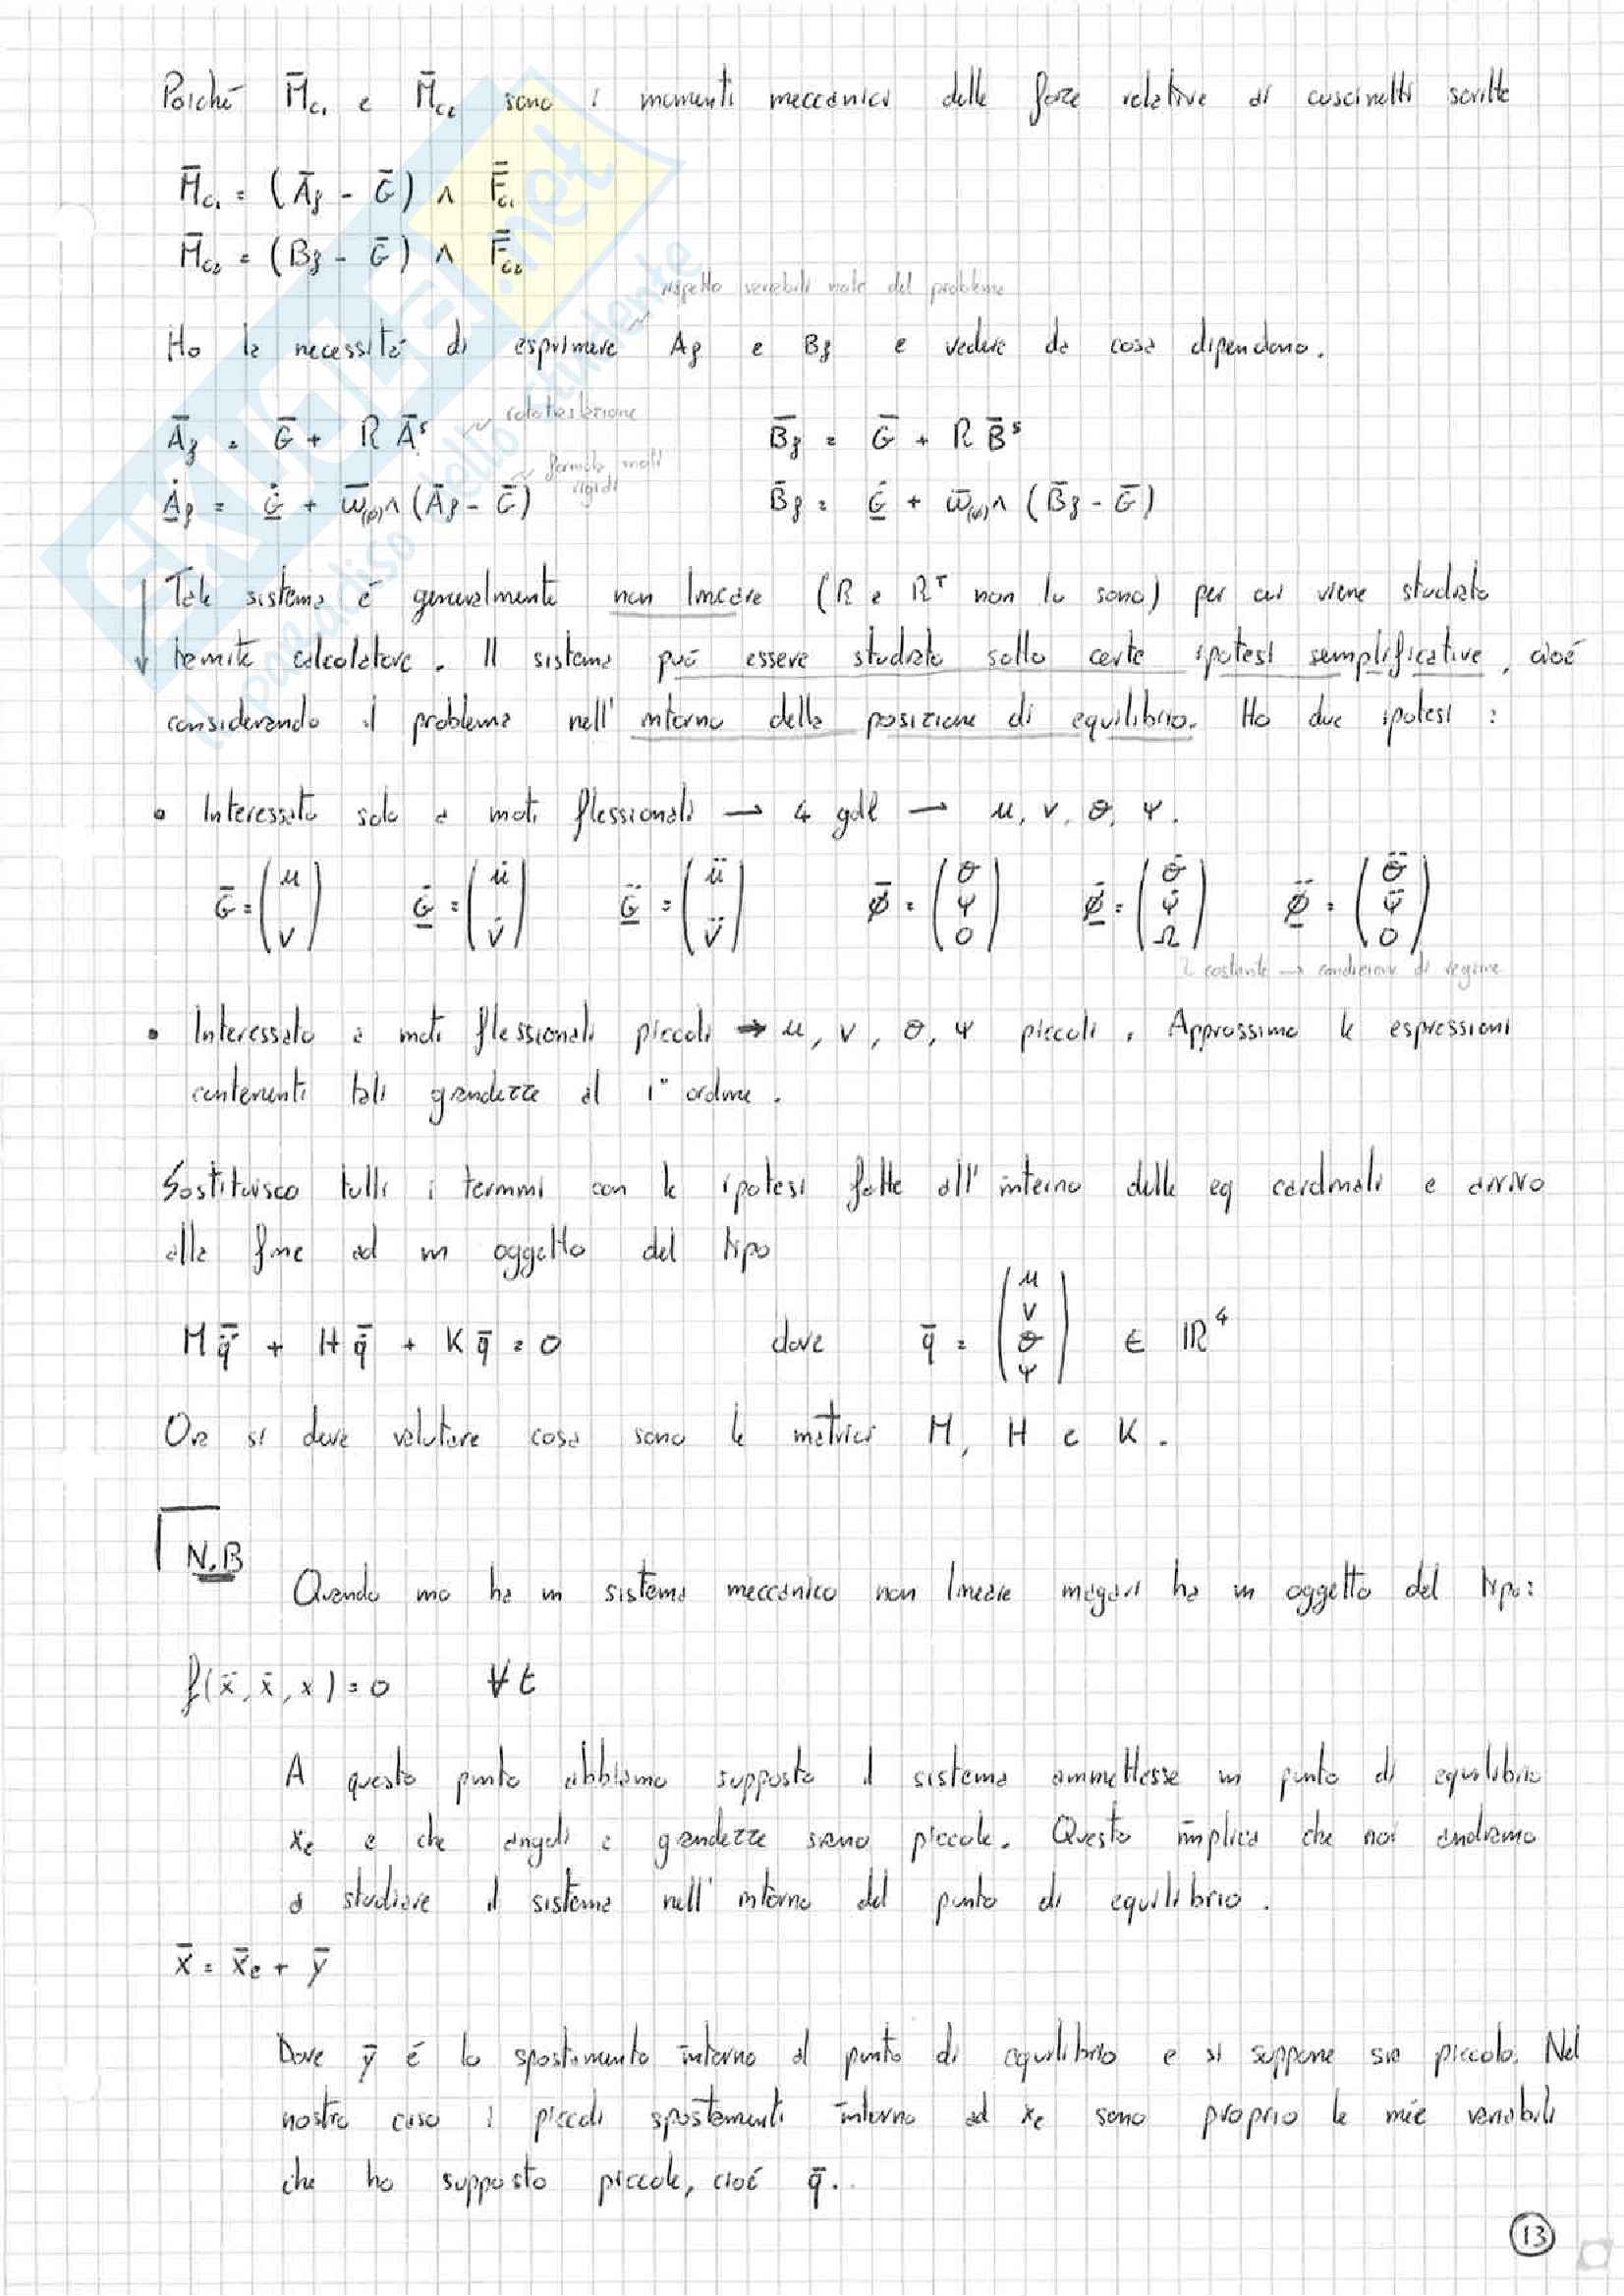 Poiché M̄c₁ e M̄c₂ sono i momenti meccanici delle forze relative ai cuscinetti scritte
M̄c₁ = (Āg - Ḡ) ∧ F̄c₁
M̄c₂ = (Bg - Ḡ) ∧ F̄c₂
rispetto variabili note del problema
Ho la necessità di esprimere Ag e Bg e vedere da cosa dipendono.
Āg = Ḡ + R Āˢ ~ rototraslazione B̄g = Ḡ + R B̄ˢ
Ȧg = Ġ + ω̄ ∧ (Āg - Ḡ) ~ formula moti rigidi Ḃg = Ġ + ω̄ ∧ (B̄g - Ḡ)
Tale sistema é generalmente non lineare (R e Rᵀ non lo sono) per cui viene studiato
tramite calcolatore. Il sistema può essere studiato sotto certe ipotesi semplificative, cioé
considerando il problema nell'intorno della posizione di equilibrio. Ho due ipotesi :
• Interessato solo a moti flessionali → 4 gdl → u, v, θ, ψ.
Ḡ = (u v) Ġ = (u̇ v̇) G̈ = (ü v̈) φ̄ = (θ ψ 0) φ̇ = (θ̇ ψ̇ Ω) φ̈ = (θ̈ ψ̈ 0)
costante → condizione di regime
• Interessato a moti flessionali piccoli → u, v, θ, ψ piccoli. Approssimo le espressioni
contenenti tali grandezze al 1° ordine.
Sostituisco tutti i termini con le ipotesi fatte all'interno delle eq cardinali e arrivo
alla fine ad un oggetto del tipo
M q̈ + H q̇ + K q̄ = 0 dove q̄ = (u v θ ψ) ∈ ℝ⁴
Ora si deve valutare cosa sono le matrici M, H e K.
N.B
Quando uno ha un sistema meccanico non lineare magari ha un oggetto del tipo:
f(ẍ, ẋ, x) = 0 ∀ t
A questo punto abbiamo supposto il sistema ammettesse un punto di equilibrio
xe e che angoli e grandezze siano piccole. Questo implica che noi andiamo
a studiare il sistema nell'intorno del punto di equilibrio.
x̄ = x̄e + ȳ
Dove ȳ é lo spostamento intorno al punto di equilibrio e si suppone sia piccolo. Nel
nostro caso i piccoli spostamenti intorno ad xe sono proprio le mie variabili
che ho supposto piccole, cioé q̄.
13